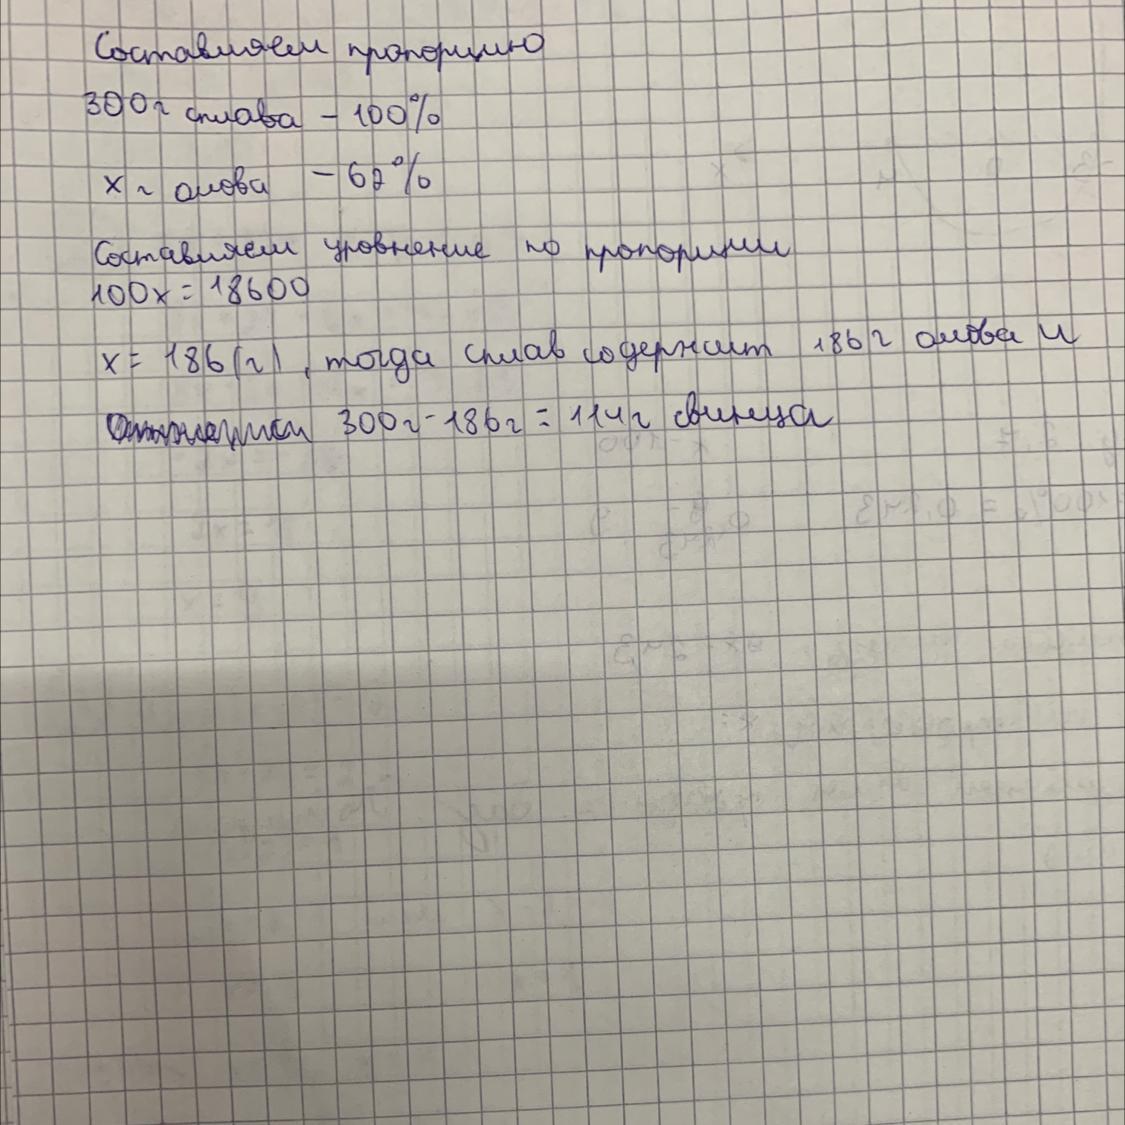 Составляем пропорцию
300г сплава - 100%
x г олова - 62%
Составляем уровнение по пропорции
100x = 18600
x = 186 (г), тогда сплав содержит 186 г олова и
300г - 186г = 114г свинца